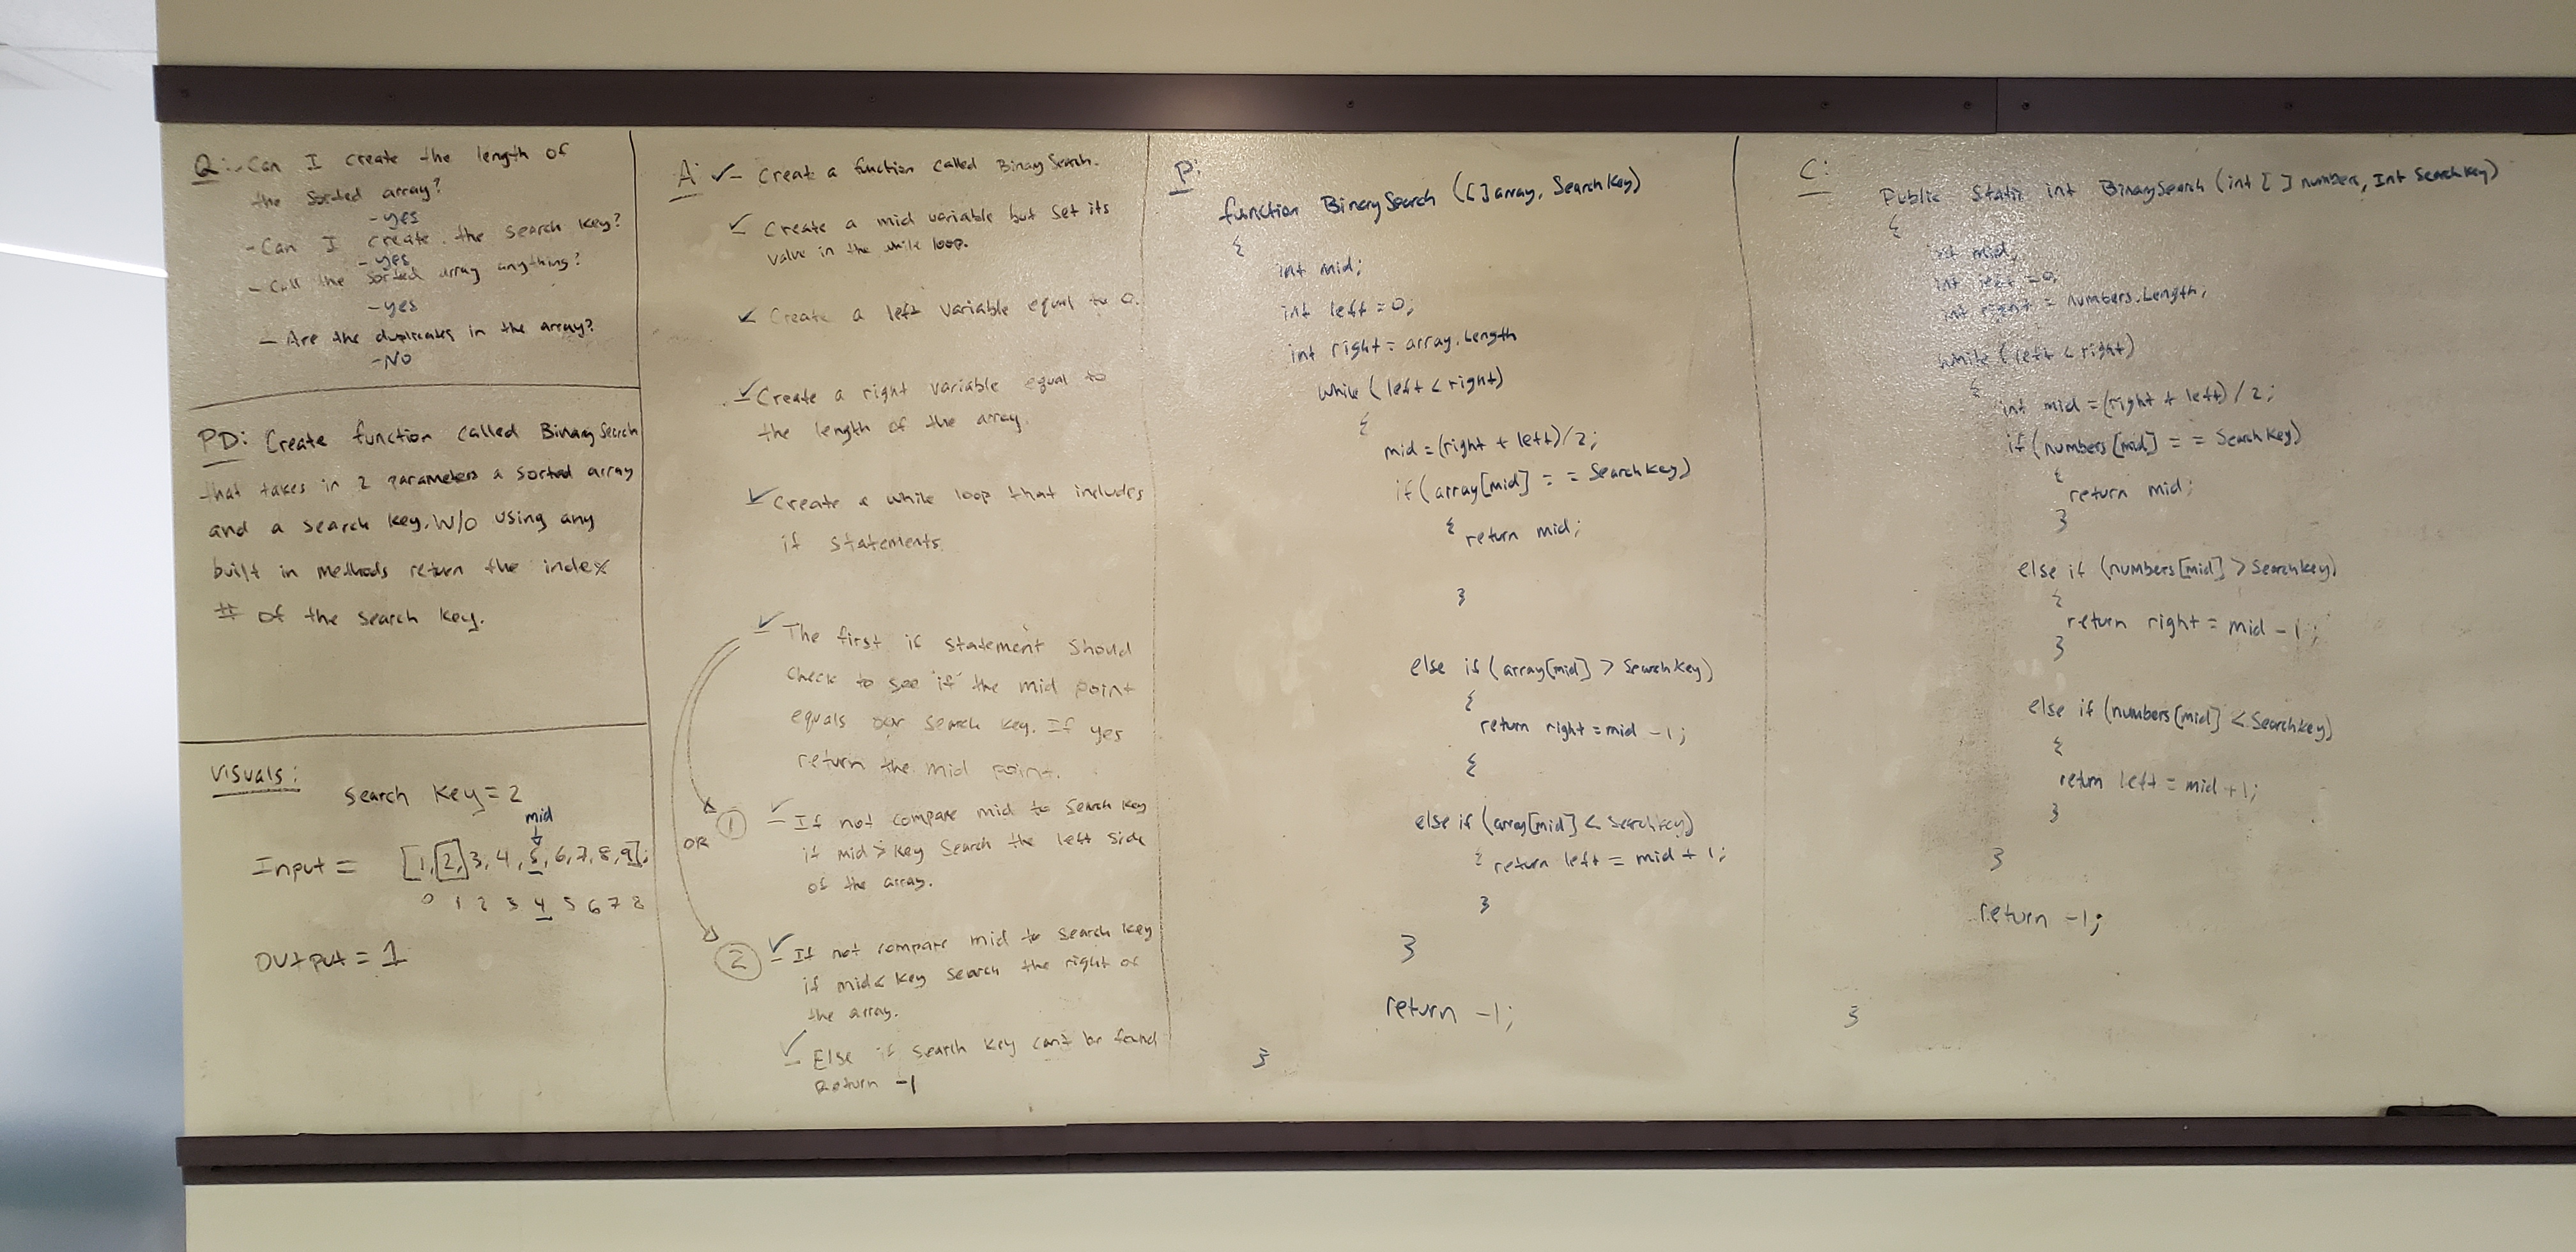 Q: - Can I create the length of
the sorted array?
- yes
- Can I create the search key?
- yes
- Call the sorted array anything?
- yes
- Are the duplicates in the array?
- No
PD: Create function called BinarySearch
that takes in 2 parameters a sorted array
and a search key. W/o using any
built in methods return the index
# of the search key.
Visuals:
Search Key = 2
mid
Input = [1, 2, 3, 4, 5, 6, 7, 8, 9];
0 1 2 3 4 5 6 7 8
Output = 1
A: ✓ - Create a function called BinarySearch.
✓ - Create a mid variable but set its
value in the while loop.
✓ - Create a left variable equal to 0.
✓ - Create a right variable equal to
the length of the array.
✓ - Create a while loop that includes
if statements.
✓ - The first if statement should
check to see "if" the mid point
equals our search key. If yes
return the mid point.
OR
① ✓ - If not compare mid to search key
if mid > key Search the left side
of the array.
② ✓ - If not compare mid to search key
if mid < key search the right of
the array.
✓ - Else if search key can't be found
Return -1
P:
function BinarySearch ([] array, SearchKey)
{
int mid;
int left = 0;
int right = array.Length
while (left < right)
{
mid = (right + left)/2;
if (array[mid] = = SearchKey)
{ return mid;
}
else if (array[mid] > SearchKey)
{
return right = mid - 1;
{
else if (array[mid] < SearchKey)
{ return left = mid + 1;
}
}
return -1;
}
C:
Public Static int BinarySearch (int [ ] numbers, Int SearchKey)
{
int mid;
int left = 0;
int right = numbers.Length;
while (left < right)
{
int mid = (right + left) / 2;
if (numbers[mid] = = SearchKey)
{
return mid;
}
else if (numbers[mid] > SearchKey)
{
return right = mid - 1;
}
else if (numbers[mid] < SearchKey)
{
return left = mid + 1;
}
}
return -1;
}